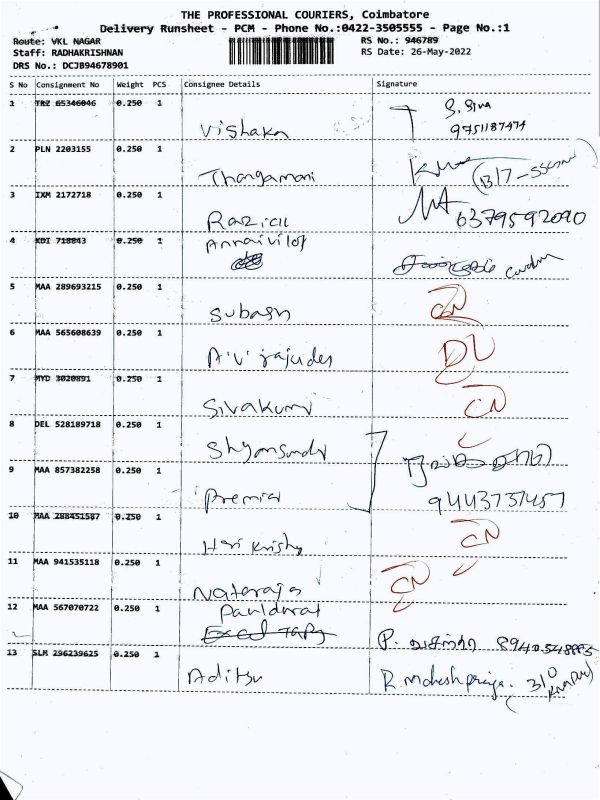 THE PROFESSIONAL COURIERS, Coimbatore
Delivery Runsheet - PCM - Phone No.:0422-3505555 - Page No.:1
Route: VKL NAGAR
RS No.: 946789
Staff: RADHAKRISHNAN
RS Date: 26-May-2022
DRS No.: DCJB94678901
S No Consignment No Weight PCS Consignee Details Signature
1 TRZ 65346046 0.250 1
Vishaka
S. Siva
9751187474
2 PLN 2203155 0.250 1
Thangamani
3 IXM 2172718 0.250 1
Raziall
6379592090
4 KDI 718843 0.250 1
5 MAA 289693215 0.250 1
Subash
CN
6 MAA 565608639 0.250 1
A.V. rajudes
DL
7 MYD 3020891 0.250 1
Sivakumr
CN
8 DEL 528189718 0.250 1
Shyamsundr
9 MAA 857382258 0.250 1
Premia
9443737457
10 MAA 288451587 0.250 1
Hari Krishn
CN
11 MAA 941535118 0.250 1
Nataraja
CN
12 MAA 567070722 0.250 1
Pauldurai
P.
8940548885
13 SLM 296239625 0.250 1
Aditsu
R. Maheshpriya.